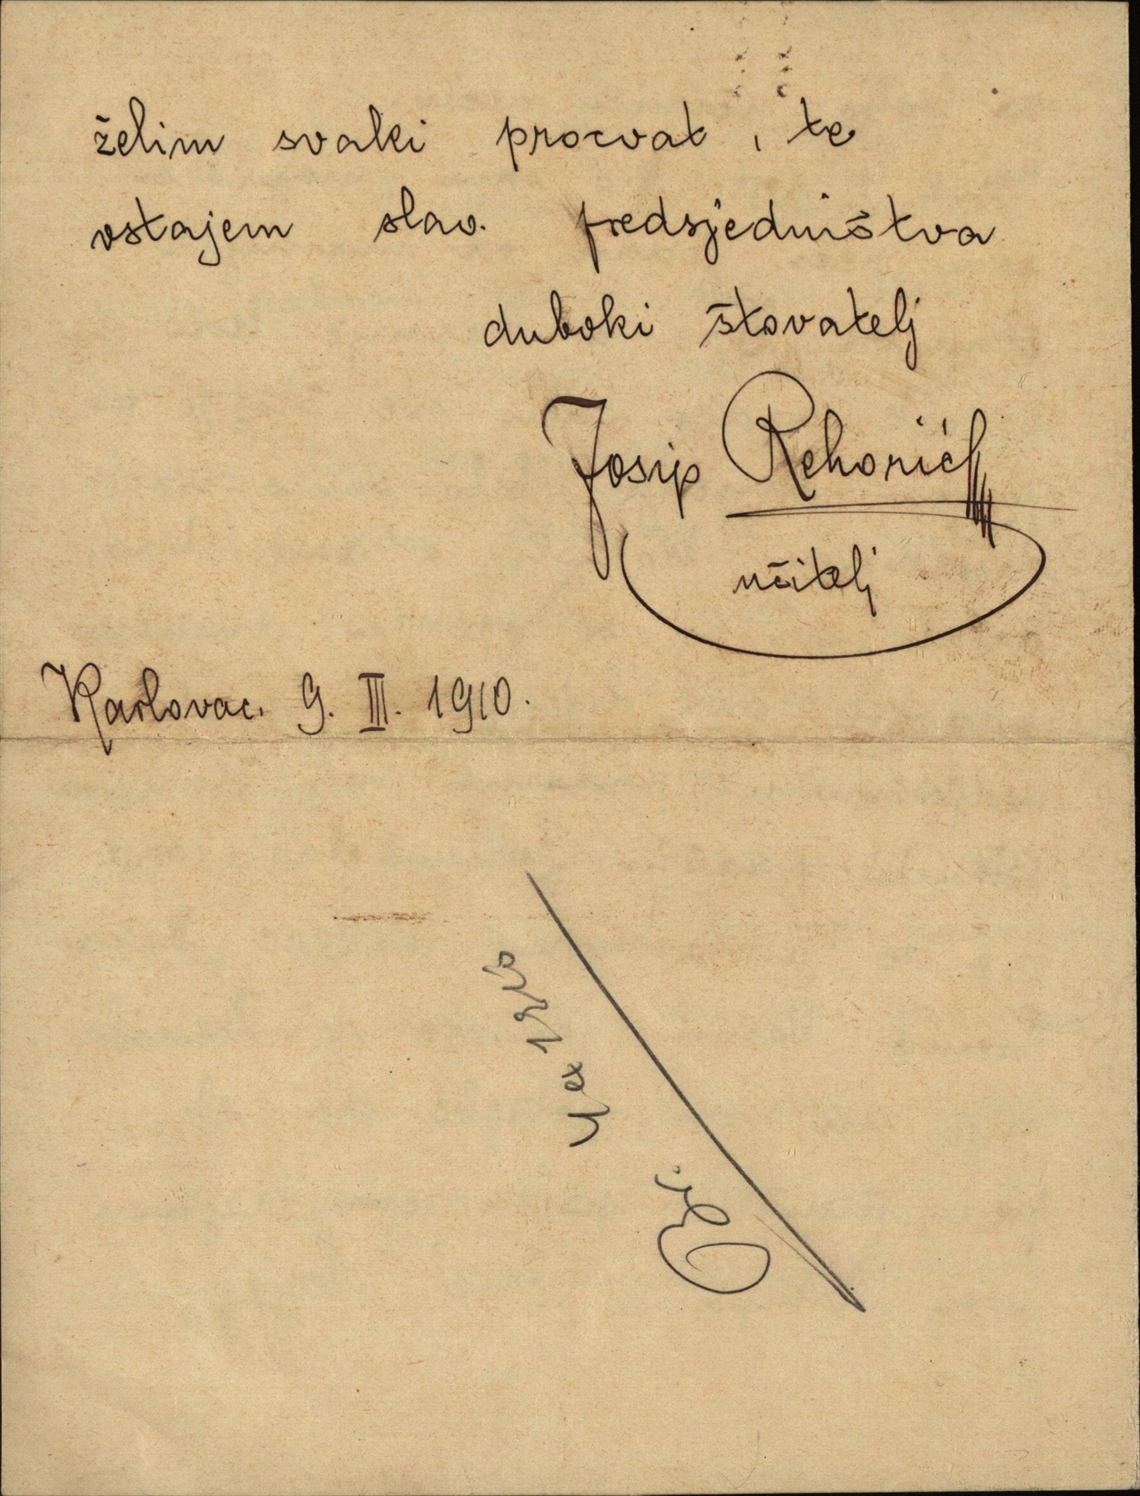 želim svaki procvat, te
ostajem slav. predsjedništva
duboki štovatelj
Josip Rehorić
učitelj
Karlovac. 9. III. 1910.